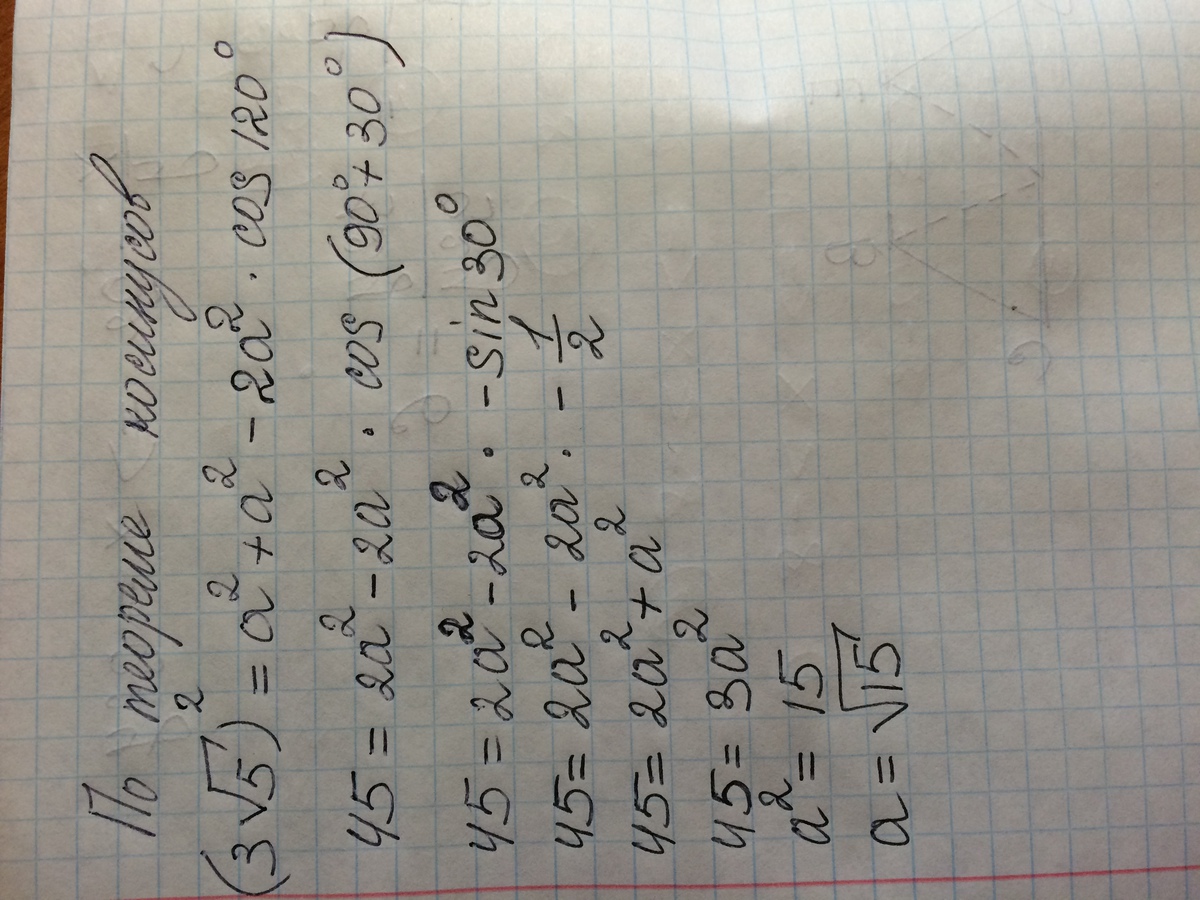 По теореме косинусов
(3√5)² = a² + a² - 2a² · cos 120°
45 = 2a² - 2a² · cos (90° + 30°)
45 = 2a² - 2a² · - sin 30°
45 = 2a² - 2a² · - 1/2
45 = 2a² + a²
45 = 3a²
a² = 15
a = √15